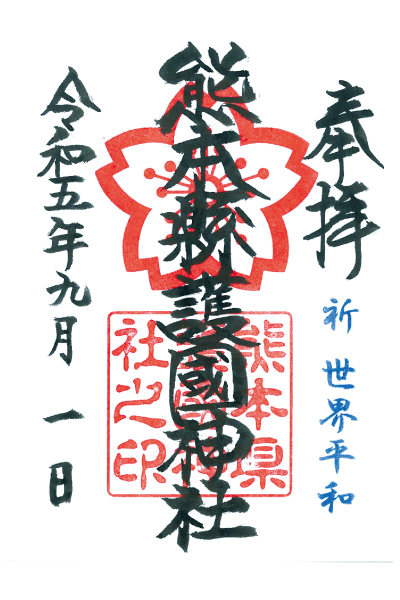 奉拝
祈 世界平和
熊本縣護國神社
熊本県
護國神
社之印
令和五年九月 一日